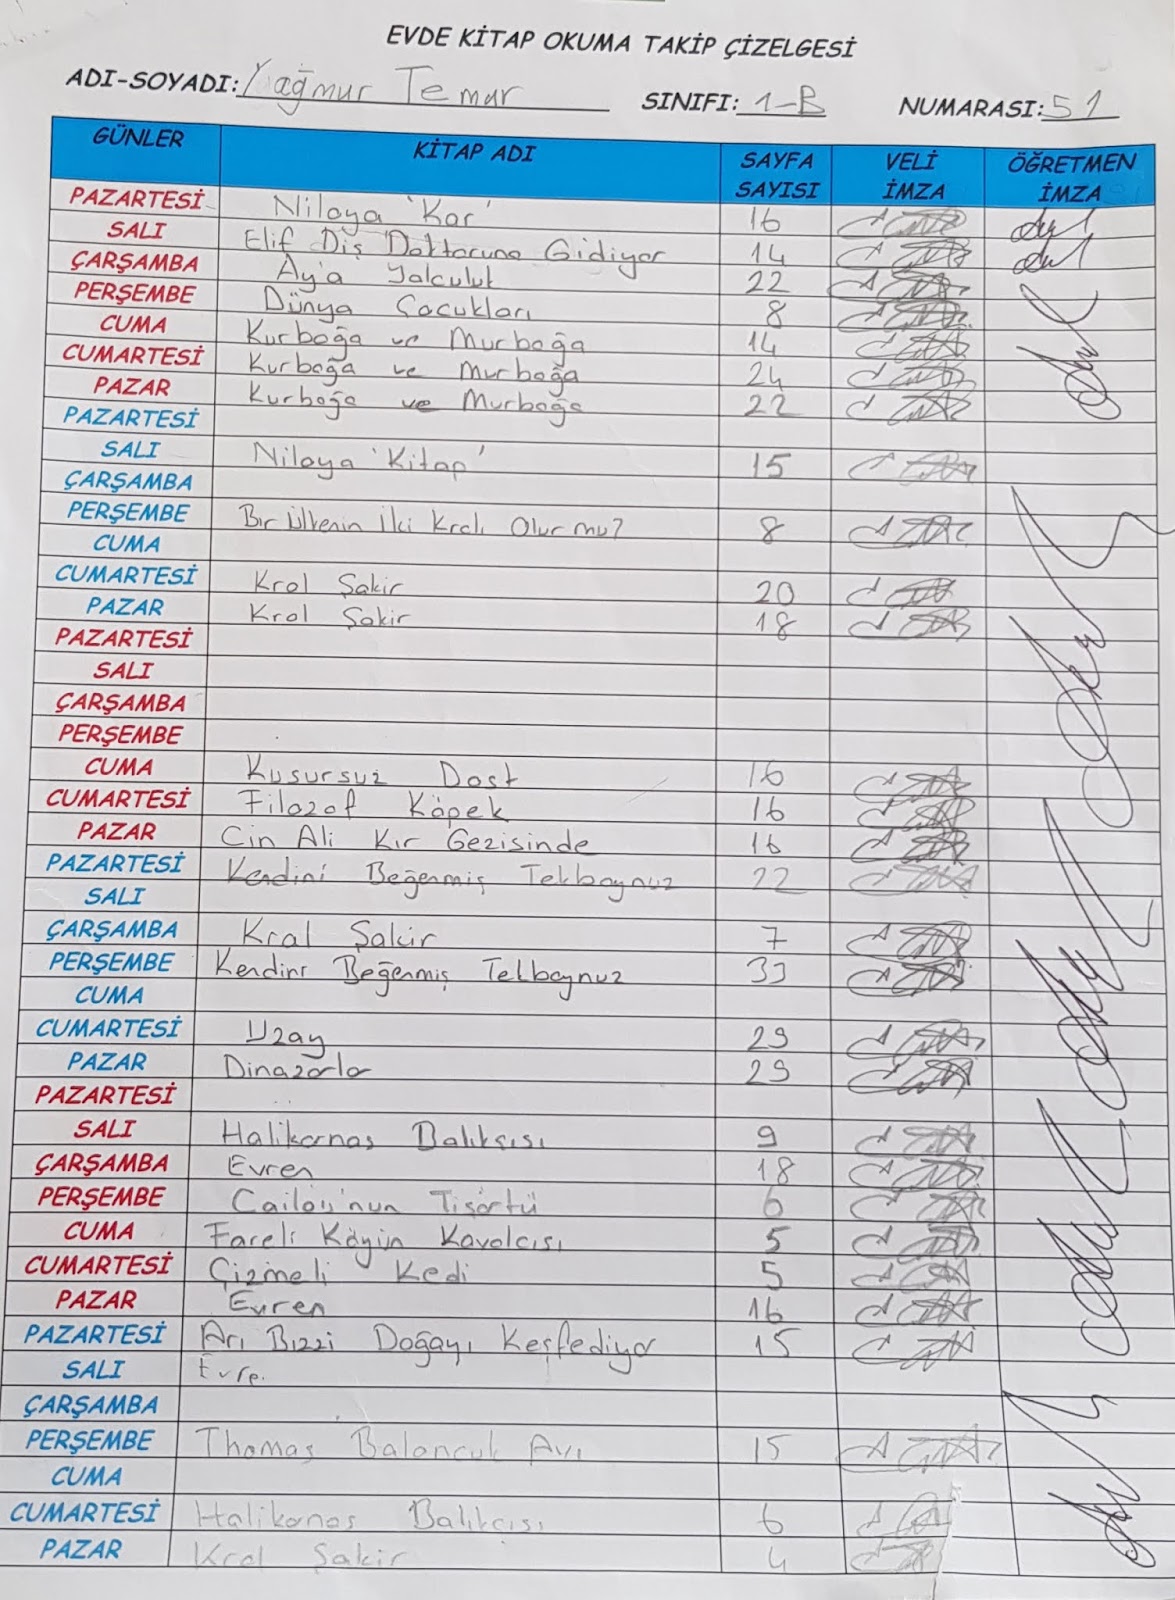 EVDE KİTAP OKUMA TAKİP ÇİZELGESİ
ADI-SOYADI: Yağmur Temur SINIFI: 1-B NUMARASI: 51
GÜNLER KİTAP ADI SAYFA SAYISI VELİ İMZA ÖĞRETMEN İMZA
PAZARTESİ Niloya 'Kar' 16
SALI Elif Diş Doktoruna Gidiyor 14
ÇARŞAMBA Ay'a Yolculuk 22
PERŞEMBE Dünya Çocukları 8
CUMA Kurbağa ve Murbağa 14
CUMARTESİ Kurbağa ve Murbağa 24
PAZAR Kurbağa ve Murbağa 22
PAZARTESİ
SALI Niloya 'Kitap' 15
ÇARŞAMBA
PERŞEMBE Bir Ülkenin İki Kralı Olur mu? 8
CUMA
CUMARTESİ Kral Şakir 20
PAZAR Kral Şakir 18
PAZARTESİ
SALI
ÇARŞAMBA
PERŞEMBE
CUMA Kusursuz Dost 16
CUMARTESİ Filozof Köpek 16
PAZAR Cin Ali Kır Gezisinde 16
PAZARTESİ Kendini Beğenmiş Tekboynuz 22
SALI
ÇARŞAMBA Kral Şakir 7
PERŞEMBE Kendini Beğenmiş Tekboynuz 33
CUMA
CUMARTESİ Uzay 29
PAZAR Dinazorlar 29
PAZARTESİ
SALI Halikarnas Balıkçısı 9
ÇARŞAMBA Evren 18
PERŞEMBE Cailou'nun Tişörtü 6
CUMA Fareli Köyün Kavalcısı 5
CUMARTESİ Çizmeli Kedi 5
PAZAR Evren 16
PAZARTESİ Arı Bızzi Doğayı Keşfediyor 15
SALI
ÇARŞAMBA
PERŞEMBE Thomas Baloncuk Avı 15
CUMA
CUMARTESİ Halikarnas Balıkçısı 6
PAZAR Kral Şakir 4